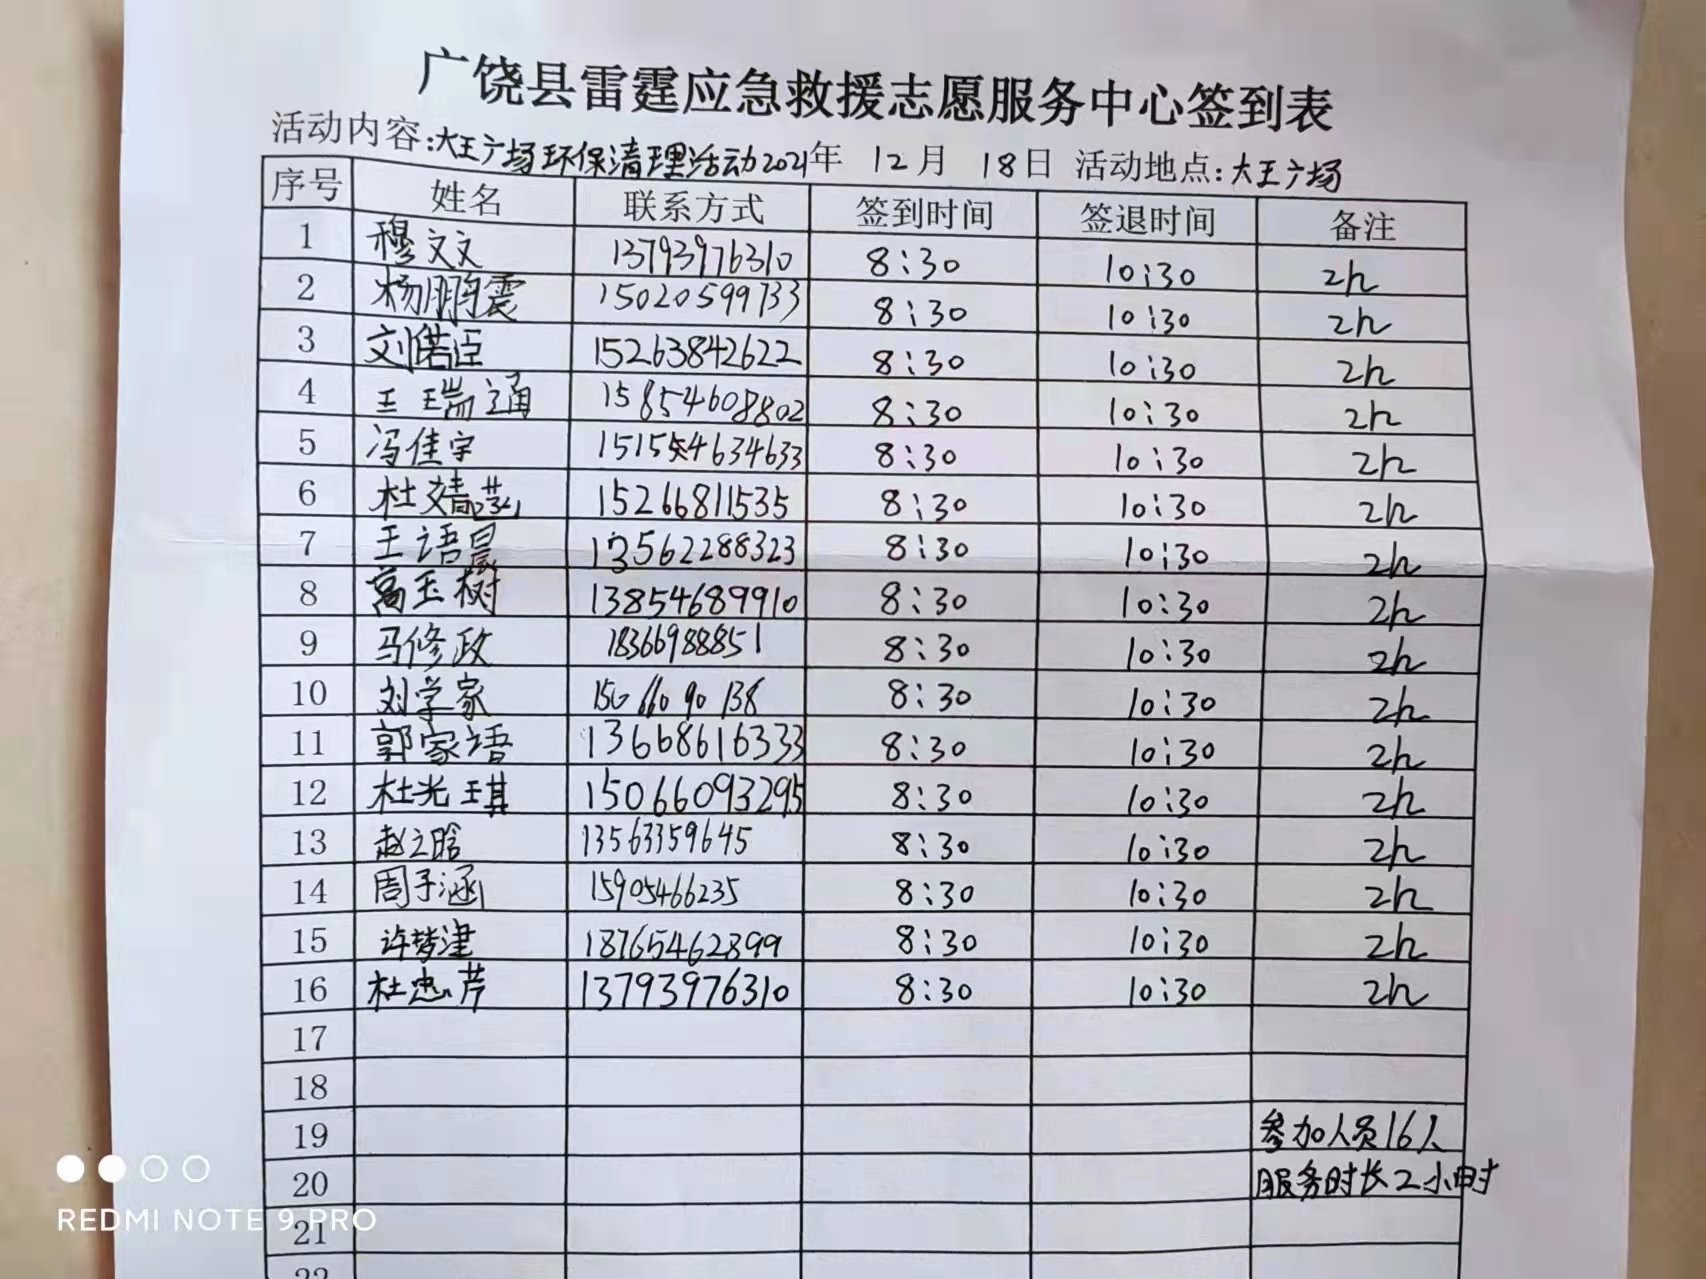 广饶县雷霆应急救援志愿服务中心签到表
活动内容:大王广场环保清理活动2021年 12月 18日 活动地点:大王广场
序号 姓名 联系方式 签到时间 签退时间 备注
1 穆文文 13793976310 8:30 10:30 2h
2 杨鹏震 15020599733 8:30 10:30 2h
3 刘偌臣 15263842622 8:30 10:30 2h
4 王瑞通 15854608802 8:30 10:30 2h
5 冯佳宇 8:30 10:30 2h
6 杜 15266811535 8:30 10:30 2h
7 王语晨 13562288323 8:30 10:30 2h
8 高玉树 13854689910 8:30 10:30 2h
9 马修政 18366988851 8:30 10:30 2h
10 刘学家 8:30 10:30 2h
11 郭家语 13668616333 8:30 10:30 2h
12 杜光琪 15066093295 8:30 10:30 2h
13 赵之晗 13563359645 8:30 10:30 2h
14 周子涵 15905466235 8:30 10:30 2h
15 许梦津 18765462899 8:30 10:30 2h
16 杜忠芹 13793976310 8:30 10:30 2h
17
18
19 参加人员16人
20 服务时长2小时
21
22
REDMI NOTE 9 PRO